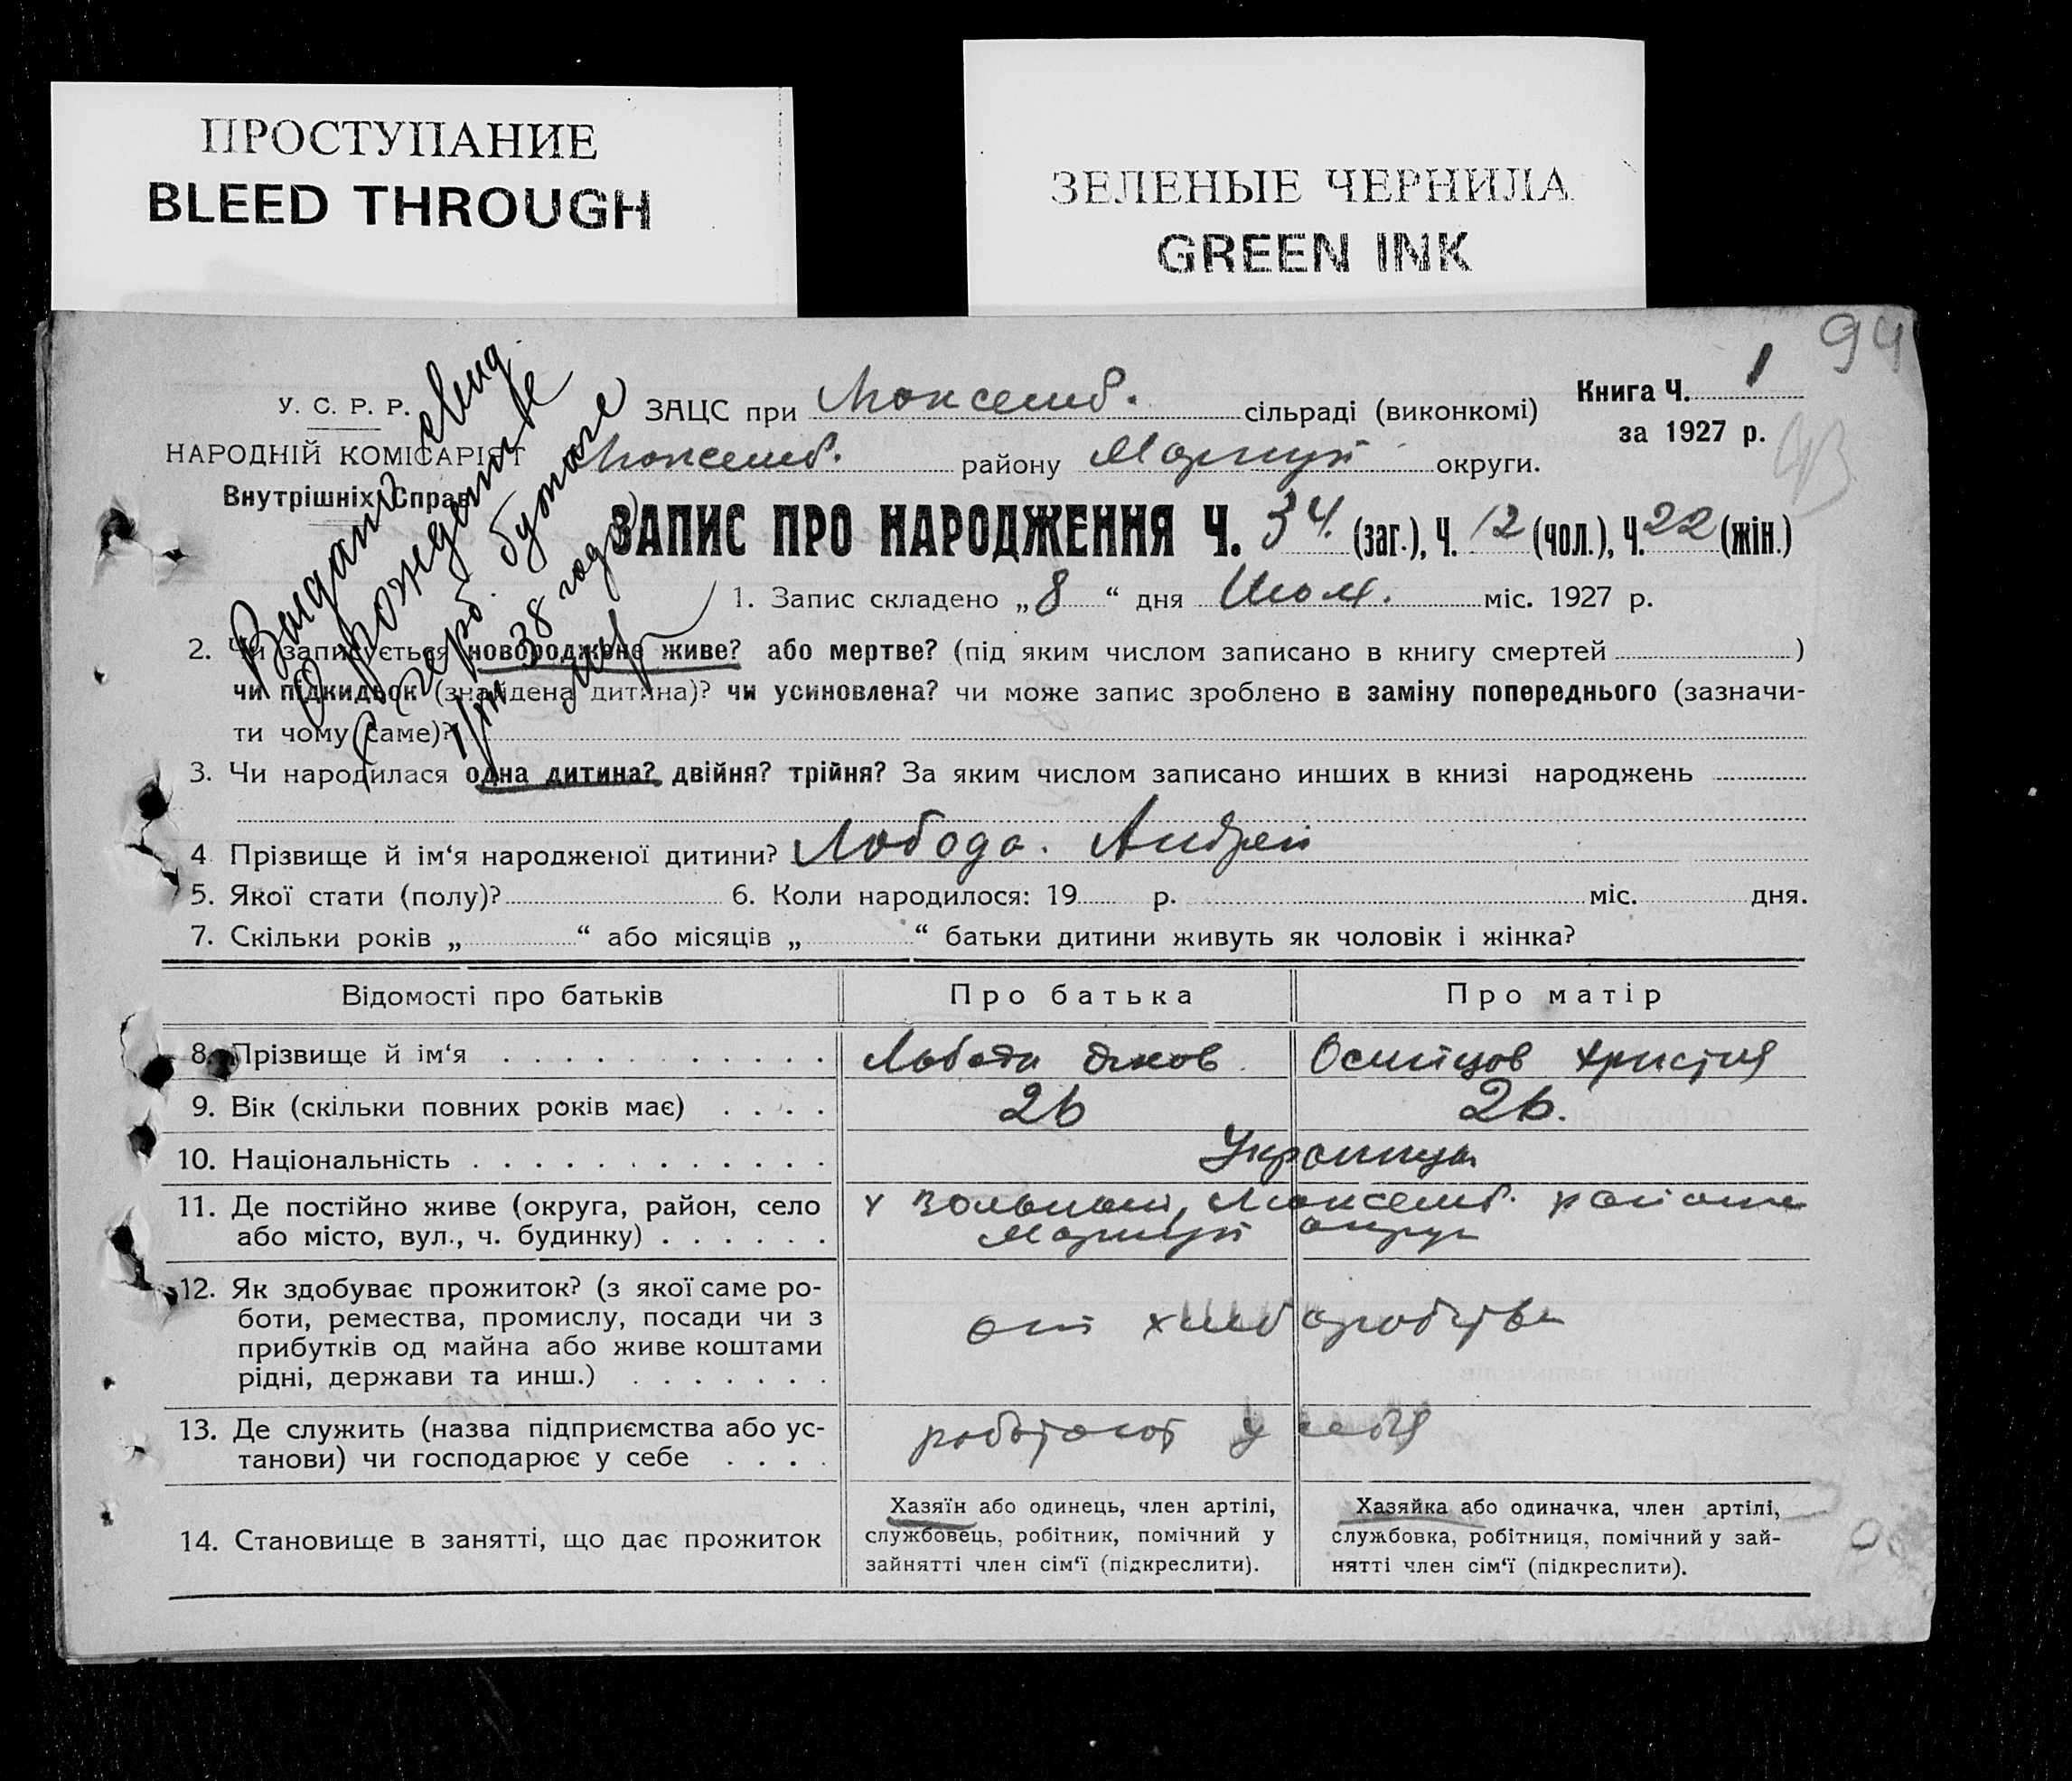 ПРОСТУПАНИЕ
BLEED THROUGH
ЗЕЛЕНЫЕ ЧЕРНИЛА
GREEN INK
94
У. С. Р. Р.
НАРОДНІЙ КОМІСАРІЯТ
Внутрішніх Справ
ЗАЦС при сільраді (виконкомі)
району Маріуп округи.
Книга Ч. 1
за 1927 р.
ЗАПИС ПРО НАРОДЖЕННЯ Ч. 34 (заг.), Ч. 12 (чол.), Ч. 22 (жін.)
1. Запис складено „ 8 “ дня міс. 1927 р.
2. Чи записується новороджене живе? або мертве? (під яким числом записано в книгу смертей )
чи підкидьок (знайдена дитина)? чи усиновлена? чи може запис зроблено в заміну попереднього (зазначи-
ти чому саме)?
3. Чи народилася одна дитина? двійня? трійня? За яким числом записано инших в книзі народжень
4 Прізвище й ім‘я народженої дитини? Лобода. Андрей
5. Якої стати (полу)? 6. Коли народилося: 19 р. міс. дня.
7. Скільки років „ “ або місяців „ “ батьки дитини живуть як чоловік і жінка?
Відомості про батьків Про батька Про матір
8. Прізвище й ім‘я Лобода Яков Христия
9. Вік (скільки повних років має) 26 26.
10. Національність Украинцы
11. Де постійно живе (округа, район, село
або місто, вул., ч. будинку)
12. Як здобуває прожиток? (з якої саме ро-
боти, ремества, промислу, посади чи з
прибутків од майна або живе коштами
рідні, держави та инш.)
13. Де служить (назва підприємства або ус-
танови) чи господарює у себе работают у себя
14. Становище в занятті, що дає прожиток
Хазяїн або одинець, член артілі,
службовець, робітник, помічний у
зайнятті член сім‘ї (підкреслити).
Хазяйка або одиначка, член артілі,
службовка, робітниця, помічний у зай-
нятті член сім‘ї (підкреслити).